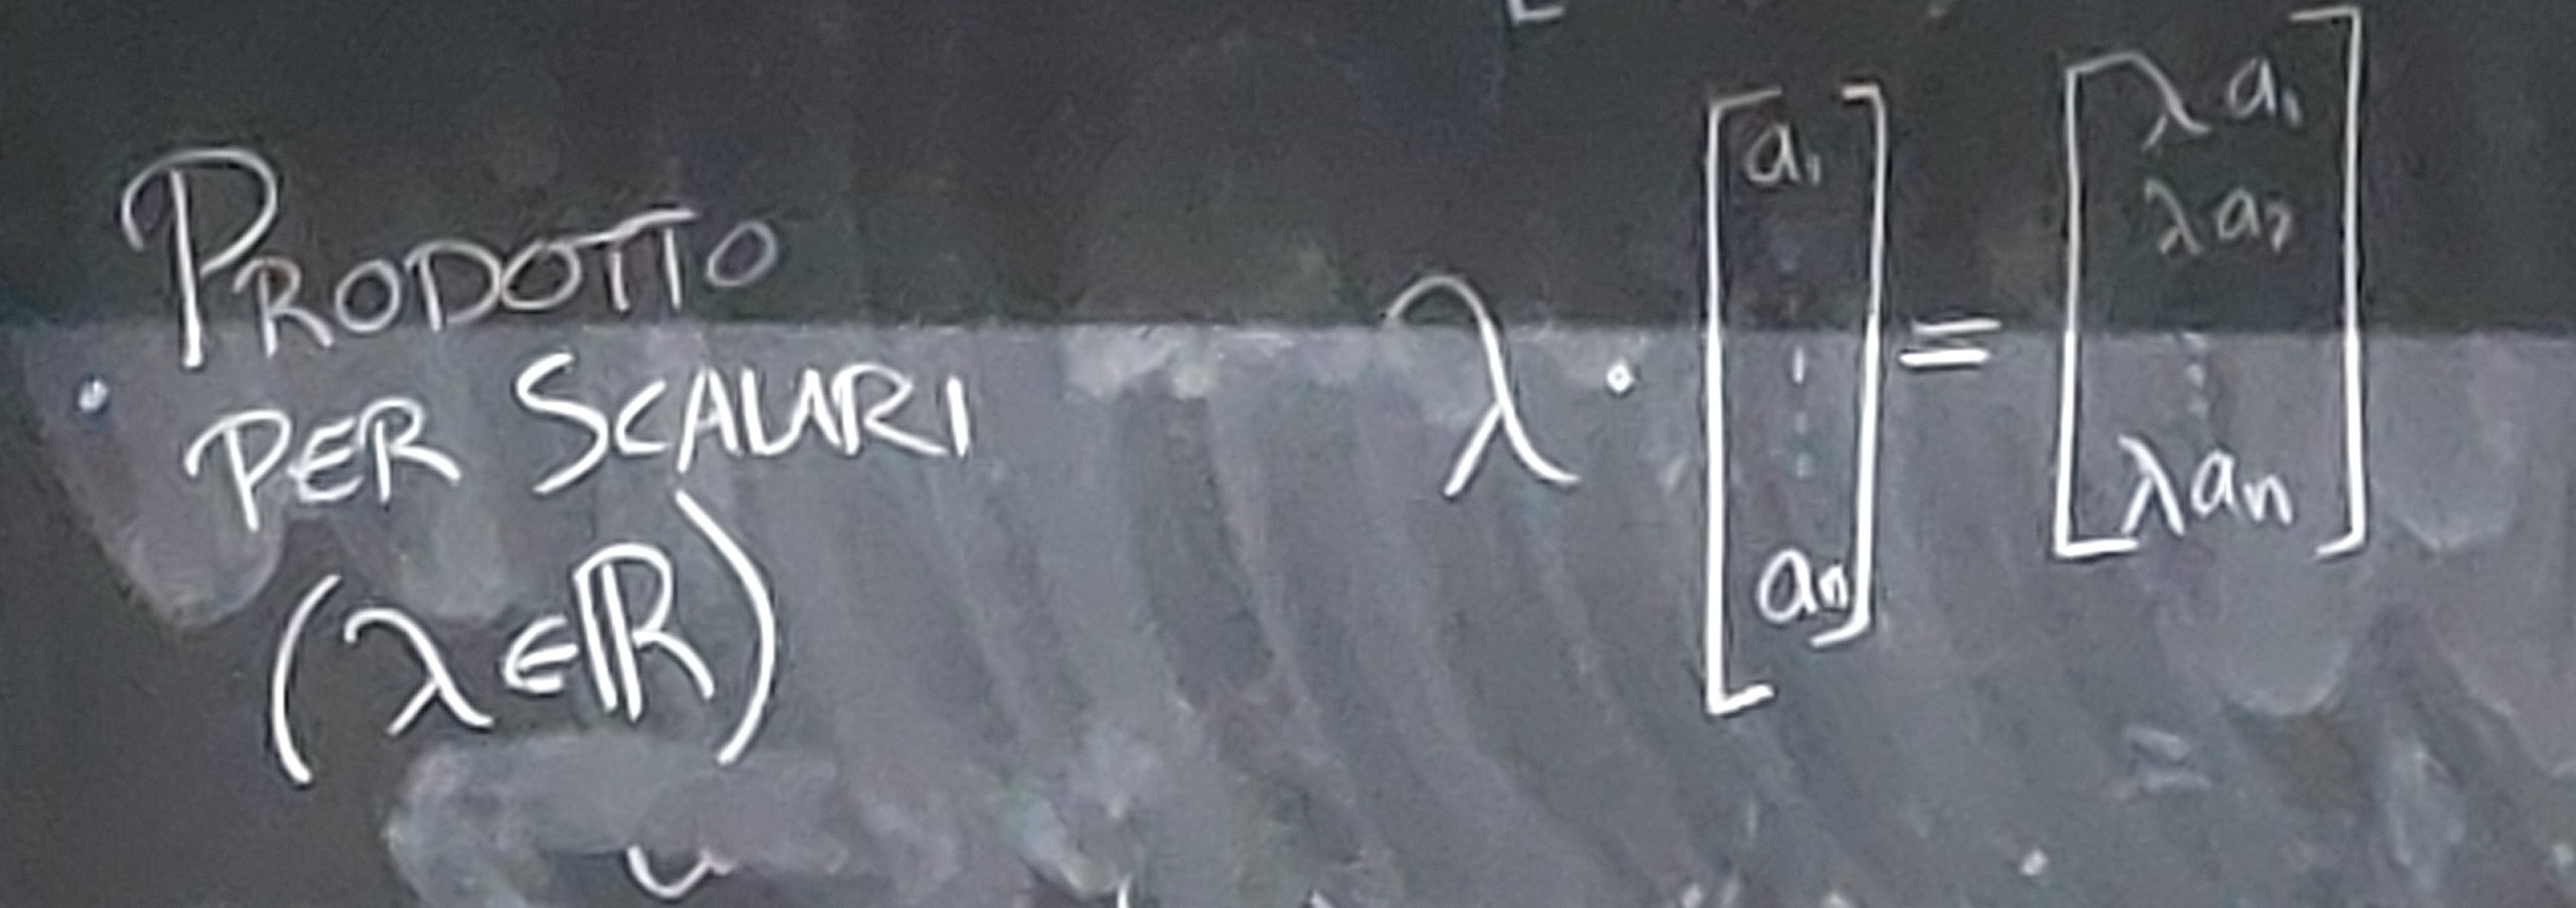 • PRODOTTO
PER SCALARI
(λ∈ℝ)
λ · [a₁ ⋮ aₙ] = [λa₁ λa₂ ⋮ λaₙ]